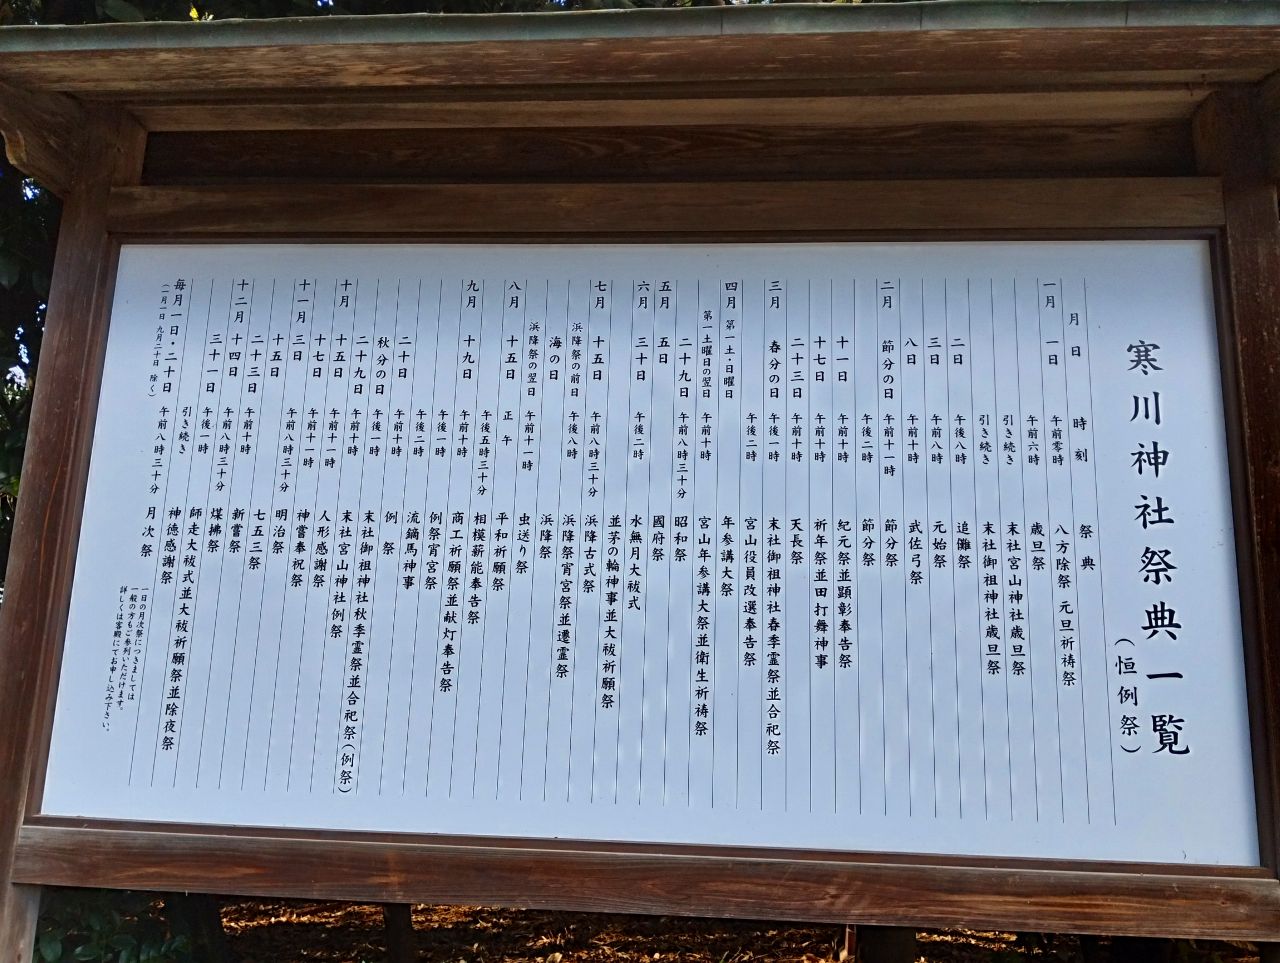 寒川神社祭典一覧
(恒例祭)
月日 時刻 祭典
一月 一日 午前零時 八方除祭 元旦祈祷祭
午前六時 歳旦祭
引き続き 末社宮山神社歳旦祭
引き続き 末社御祖神社歳旦祭
二日 午後八時 追儺祭
三日 午前十時 元始祭
八日 午前十時 武佐弓祭
二月 節分の日 午前十一時 節分祭
午後二時 節分祭
十一日 午前十時 紀元祭並顕彰奉告祭
十七日 午前十時 祈年祭並田打舞神事
二十三日 午前十時 天長祭
三月 春分の日 午前十時 末社御祖神社春季霊祭並合祀祭
午後二時 宮山役員改選奉告祭
四月 第一土・日曜日 年参講大祭
第一土曜日の翌日 午前十時 宮山年参講大祭並衛生祈祷祭
二十九日 午前八時三十分 昭和祭
五月 五日 國府祭
六月 三十日 午後二時 水無月大祓式
並茅の輪神事並大祓祈願祭
七月 十五日 午前八時三十分 浜降古式祭
浜降祭の前日 午後八時 浜降祭宵宮祭並遷霊祭
海の日 浜降祭
浜降祭の翌日 午前十一時 虫送り祭
八月 十五日 正午 平和祈願祭
午後五時三十分 相模薪能奉告祭
九月 十九日 午前十時 商工祈願祭並献灯奉告祭
午後一時 例祭宵宮祭
午後二時 流鏑馬神事
二十日 午前十時 例祭
秋分の日 午後一時 末社御祖神社秋季霊祭並合祀祭(例祭)
二十九日 午前十時 末社宮山神社例祭
十月 十五日 午前十一時 人形感謝祭
十七日 午前十一時 神嘗奉祝祭
十一月 三日 午前八時三十分 明治祭
十五日 七五三祭
二十三日 午前十時 新嘗祭
十二月 十四日 午前八時三十分 煤拂祭
三十一日 午後一時 師走大祓式並大祓祈願祭並除夜祭
引き続き 神徳感謝祭
毎月一日・二十日 午前八時三十分 月次祭
(一月一日 九月二十日 除く)
一日の月次祭につきましては
一般の方もご参列いただけます。
詳しくは客殿にてお申し込み下さい。